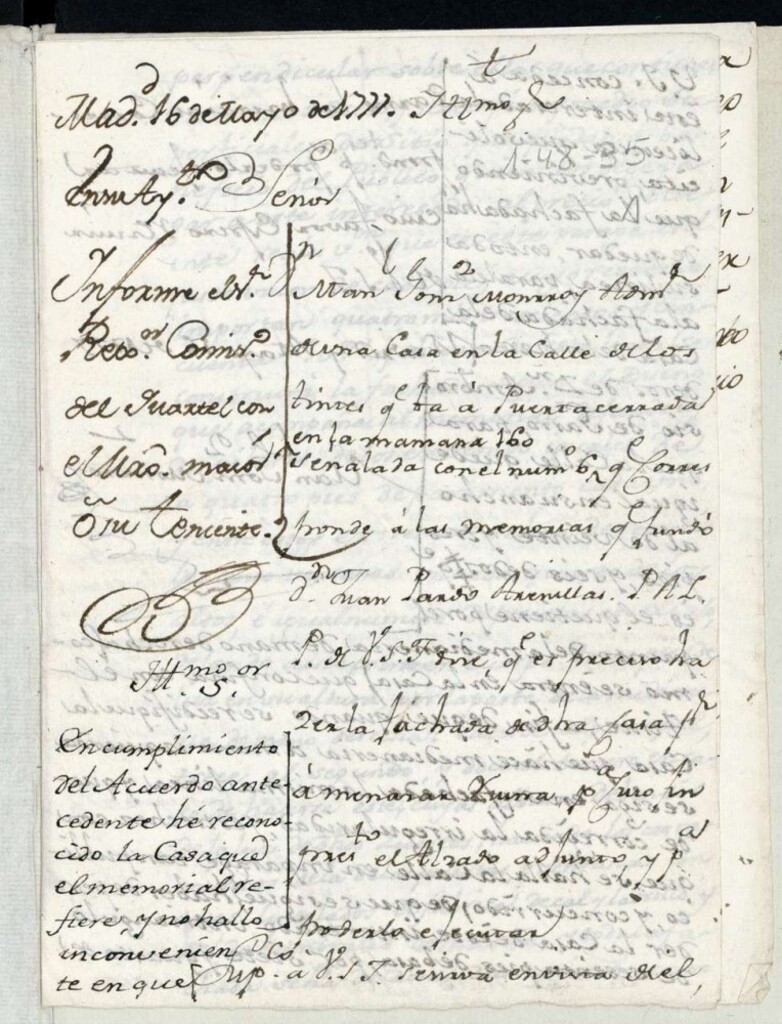 Mad.d 16 de Mayo de 1777.
En su Ay.to
Informe el S.r
Rex.or Comis.o
del Quartel con
el Mro. maior
ó su teniente.
Ill.mo S.or
En cumplimiento
del Acuerdo ante-
cedente hé recono-
cido la Casa que
el memorial re-
fiere, y no hallo
inconvenien-
te en que
†
Ill.mo S.r
1-48-35
Señor
Man.l Monrroy Adm.r
de una Casa en la Calle de los
tintes q.e ba á Puerta cerrada
en la manzana 160
señalada con el num.o 6, q.e Corres
ponde á las memorias q.e fundó
d.n Juan Pardo Arenillas. P. A. L.
P. de V.S.I. Dize q.e es preciso ha
zer la fachada de dha Casa p.r
amenazar Ruina p.a Cuio in
presenta el Alzado adjunto y p.a
poderlo ejecutar
Sup.ca a V.S.I. se sirva en vista del